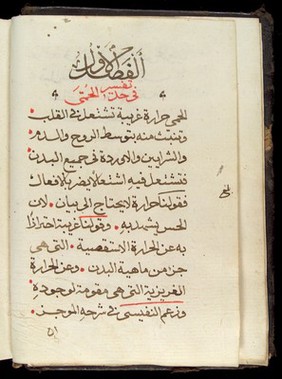 الفصل الاول
في حد تفسير الحمى
الحمى حرارة غريبة تشتعل في القلب
وتنبث منه بتوسط الروح والدم
والشرايين والاوردة في جميع البدن
فتشتعل فيه اشتعالا يضر بالافعال
فقولنا حرارة لا يحتاج الى بيان لان
الحس يشهد به وقولنا غريبة احترازا
به عن الحرارة الاسطقسية التي هي
جز من ماهية البدن وعن الحرارة
الغريزية التي هي مقومة لوجوده
وزعم النفيسي في شرحه الموجز
ان